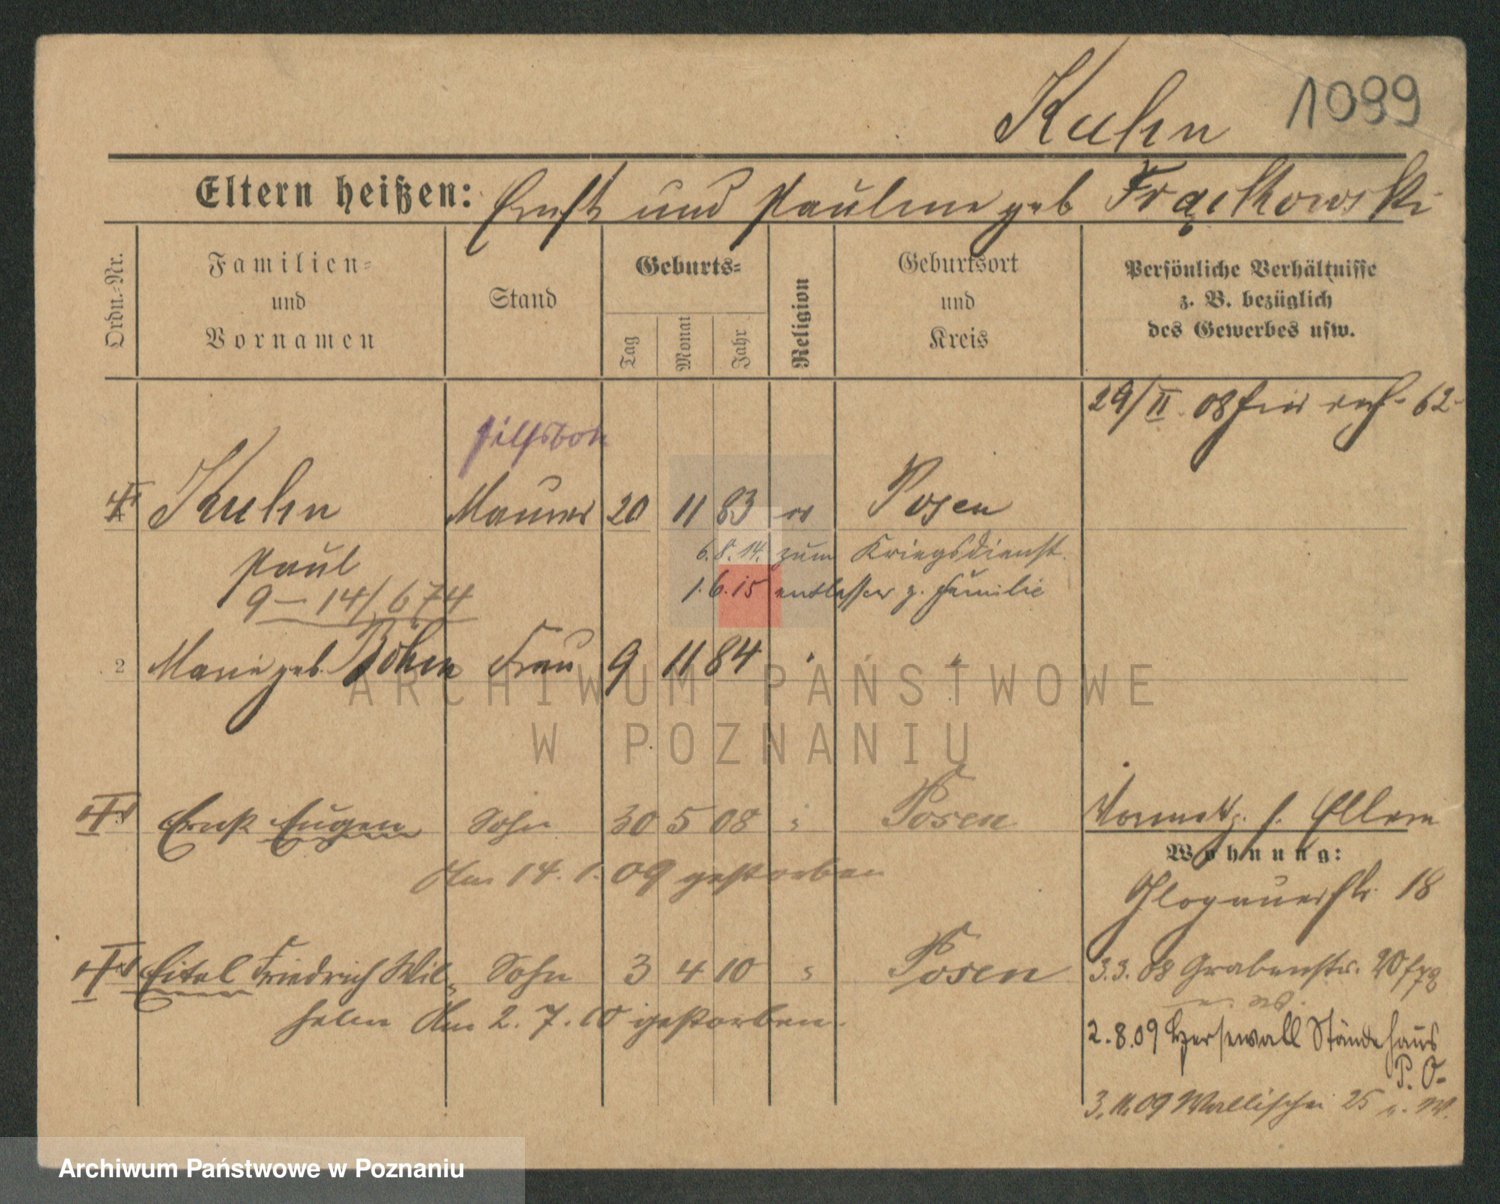 Kuhn 1099
Eltern heißen: Ernst und Pauline geb Frąckowski
Ordn.-Nr.
Familien-
und
Vornamen
Stand
Geburts-
Tag
Monat
Jahr
Religion
Geburtsort
und
Kreis
Persönliche Verhältnisse
z. B. bezüglich
des Gewerbes usw.
29/II. 08 62
Hilfsbote
Kuhn Maurer 20 11 83 Posen
6.8.14. zum Kriegsdienst
Paul
1.6.15 entlassen z. Familie
9-14/674
2 Marie geb. Böhm Frau 9 11 84 " "
Ernst Eugen Sohn 30 5 08 " Posen
Am 14.1.09 gestorben
Eitel Friedrich Wil- Sohn 3 4 10 " Posen
helm Am 2.7.10 gestorben.
Eltern
Wohnung:
Glogauerstr. 18
3.3.08 Grabenstr. 20
2.8.09 Ständehaus
P. O.
3.11.09 Wallischei 25
ARCHIWUM PAŃSTWOWE
W POZNANIU
Archiwum Państwowe w Poznaniu